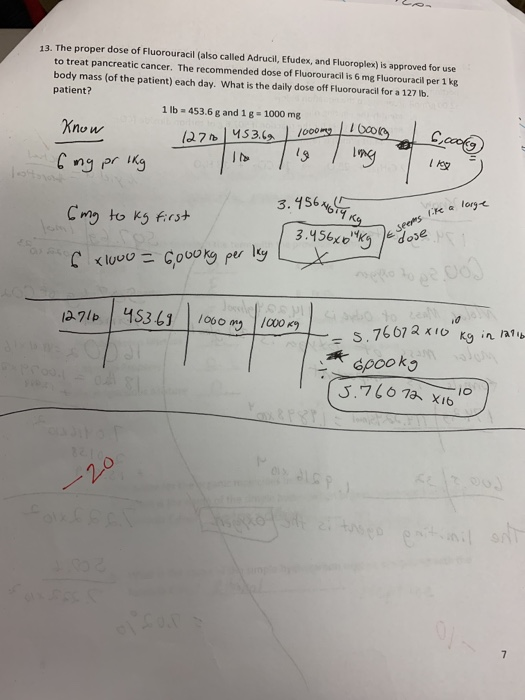 13. The proper dose of Fluorouracil (also called Adrucil, Efudex, and Fluoroplex) is approved for use
to treat pancreatic cancer. The recommended dose of Fluorouracil is 6 mg Fluorouracil per 1 kg
body mass (of the patient) each day. What is the daily dose off Fluorouracil for a 127 lb.
patient?
1 lb = 453.6 g and 1 g = 1000 mg
Know
127 lb | 453.6g | 1000mg | 1000kg | 6,000g
1 lb | 1g | 1mg | 1 kg
6 mg pr 1Kg
3.456x10^14 Kg
6mg to Kg first
3.456x10^14Kg
X
seems like a large
dose
6 x1000 = 6,000kg per 1kg
127 lb | 453.6g | 1000 mg | 1000 kg
= 5.76072 x10^10 Kg in 127lb
÷ 6000kg
5.76072 x10^10
-20
The limiting agent is the
7